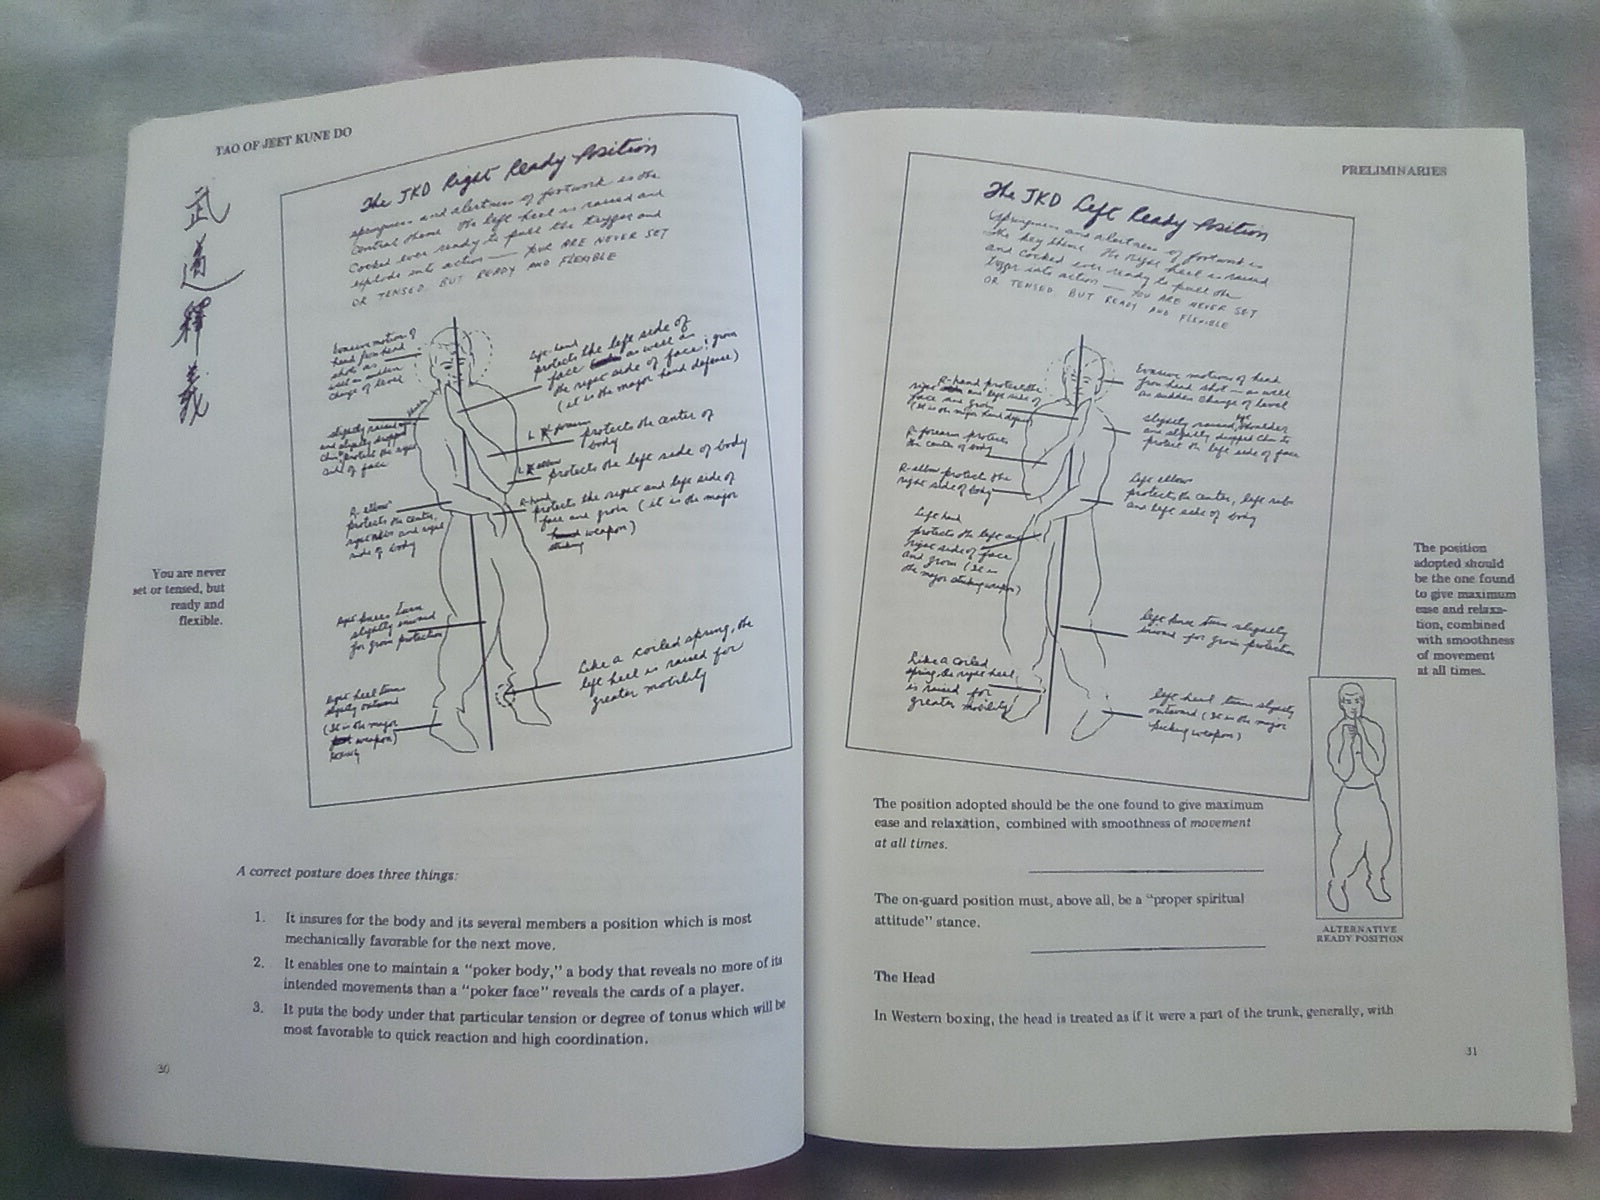 TAO OF JEET KUNE DO
武道釋義
The JKD Right Ready Position
springiness and alertness of footwork is the
central theme. The left heel is raised and
cocked ever ready to pull the trigger and
explode into action — YOU ARE NEVER SET
OR TENSED, BUT READY AND FLEXIBLE
Evasive motion of
head from head
shots as
well as sudden
change of level
slightly raised
and slightly dropped
chin protect the right
side of face
R. elbow
protects the center,
right ribs and right
side of body
right knee turn
slightly inward
for groin protection
right heel turn
slightly outward
(It is the major
weapon)
Left hand
protects the left side of
face as well as
the right side of face; groin
(it is the major hand defense)
L forearm
protects the center of
body
L elbow
protects the left side of body
R-hand
protects the right and left side of
face and groin (it is the major
weapon)
striking
Like a coiled spring, the
left heel is raised for
greater mobility
You are never
set or tensed, but
ready and
flexible.
A correct posture does three things:
1. It insures for the body and its several members a position which is most
mechanically favorable for the next move.
2. It enables one to maintain a “poker body,” a body that reveals no more of its
intended movements than a “poker face” reveals the cards of a player.
3. It puts the body under that particular tension or degree of tonus which will be
most favorable to quick reaction and high coordination.
30
PRELIMINARIES
The JKD Left Ready Position
Springiness and alertness of footwork is
the key theme. The right heel is raised
and cocked ever ready to pull the
trigger into action — YOU ARE NEVER SET
OR TENSED, BUT READY AND FLEXIBLE
R-hand protect the
right and left side of
face and groin
(It is the major hand defense)
R-forearm protects
the center of body
R-elbow protect the
right side of body
Left hand
protects the left and
right side of face
and groin (It is
the major striking weapon)
Like a coiled
spring, the right heel
is raised for
greater mobility
Evasive motions of head
from head shot — as well
as sudden change of level
slightly raised shoulder
and slightly dropped chin to
protect the left side of face
Left elbow
protects the center, left ribs
and left side of body
left knee turn slightly
inward for groin protection
left heel turn slightly
outward (It is the major
kicking weapon)
The position
adopted should
be the one found
to give maximum
ease and relaxa-
tion, combined
with smoothness
of movement
at all times.
ALTERNATIVE
READY POSITION
The position adopted should be the one found to give maximum
ease and relaxation, combined with smoothness of movement
at all times.
The on-guard position must, above all, be a “proper spiritual
attitude” stance.
The Head
In Western boxing, the head is treated as if it were a part of the trunk, generally, with
31